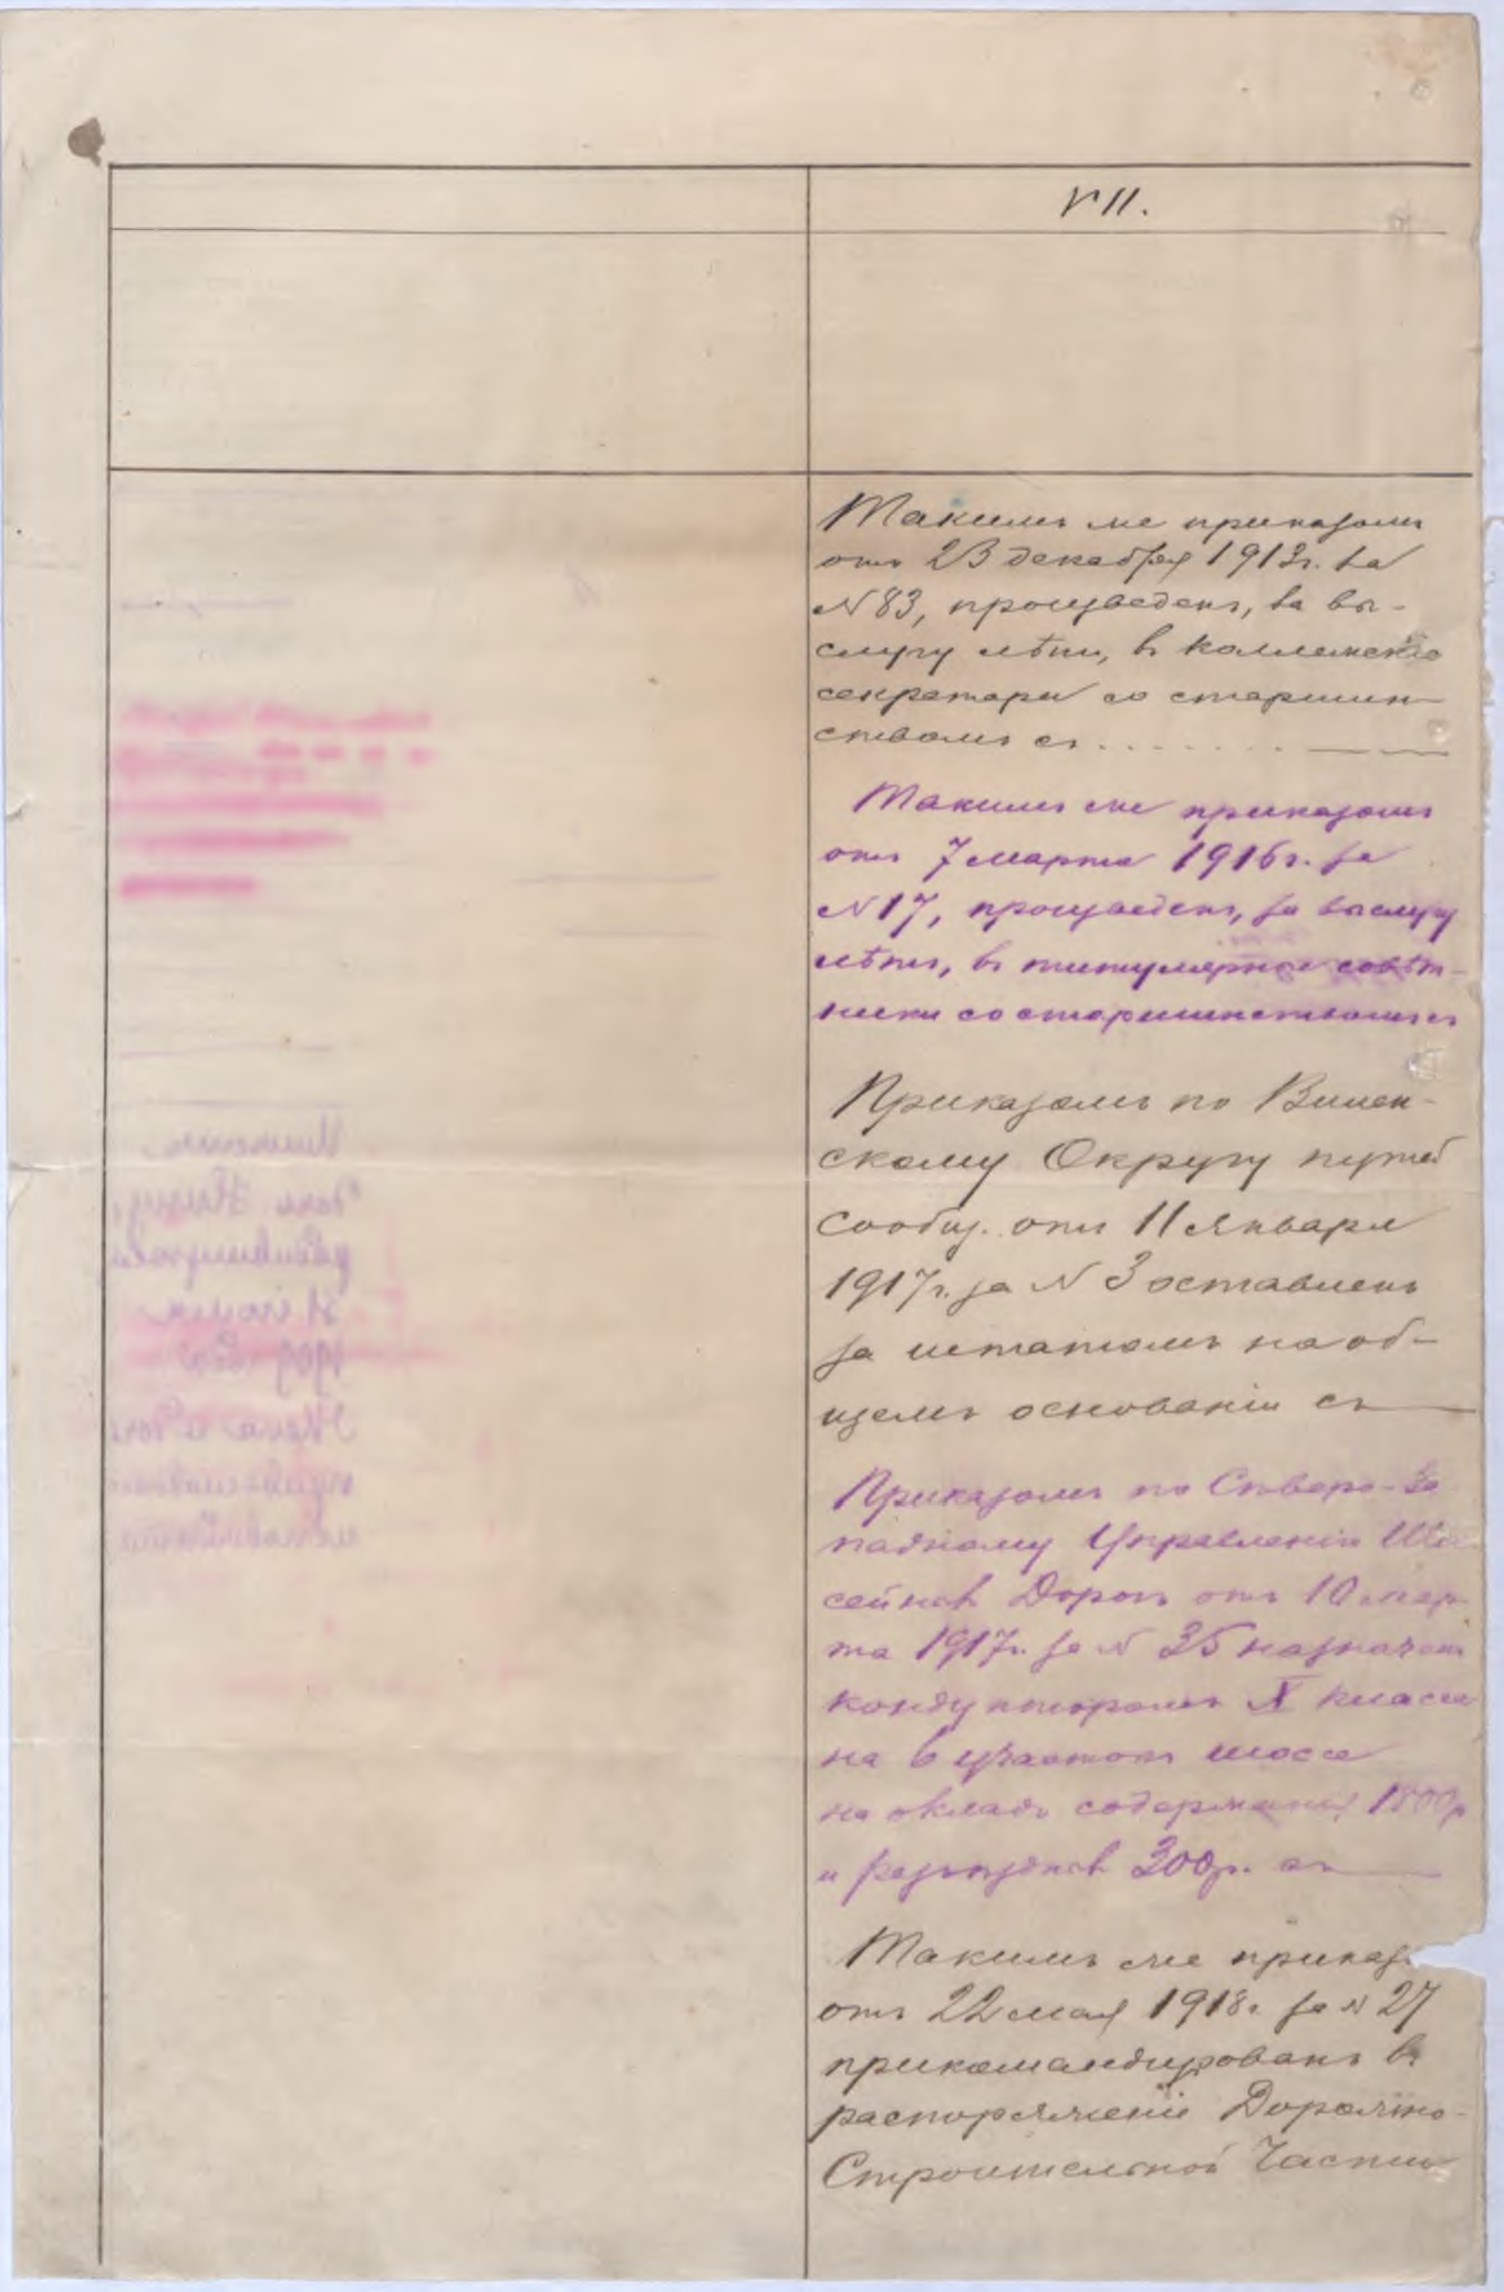 VII.
Такимъ же приказомъ
отъ 23 декабря 1913г. за
N 83, произведенъ, за вы-
слугу лѣтъ, въ коллежскіе
секретари со старшин-
ствомъ съ . . . . . . .
Такимъ же приказомъ
отъ 7 марта 1916г. за
N 17, произведенъ, за выслугу
лѣтъ, въ титулярные совѣт-
ники со старшинствомъ съ
Приказомъ по Вилен-
скому Округу путей
Сообщ. отъ 11 Января
1917г. за N 3 оставленъ
за штатомъ на об-
щемъ основаніи съ
Приказомъ по Сѣверо-За
падному Управленію Шос
сейныхъ Дорогъ отъ 10 мар
та 1917г. за N 35 назначенъ
кондукторомъ X класса
на 6 участокъ шоссе
на окладъ содержанія 1800р
и разъѣздныхъ 300р. съ
Такимъ же приказ
отъ 22 мая 1918г. за N 27
прикомандированъ въ
распоряженіе Дорожно-
Строительной Части